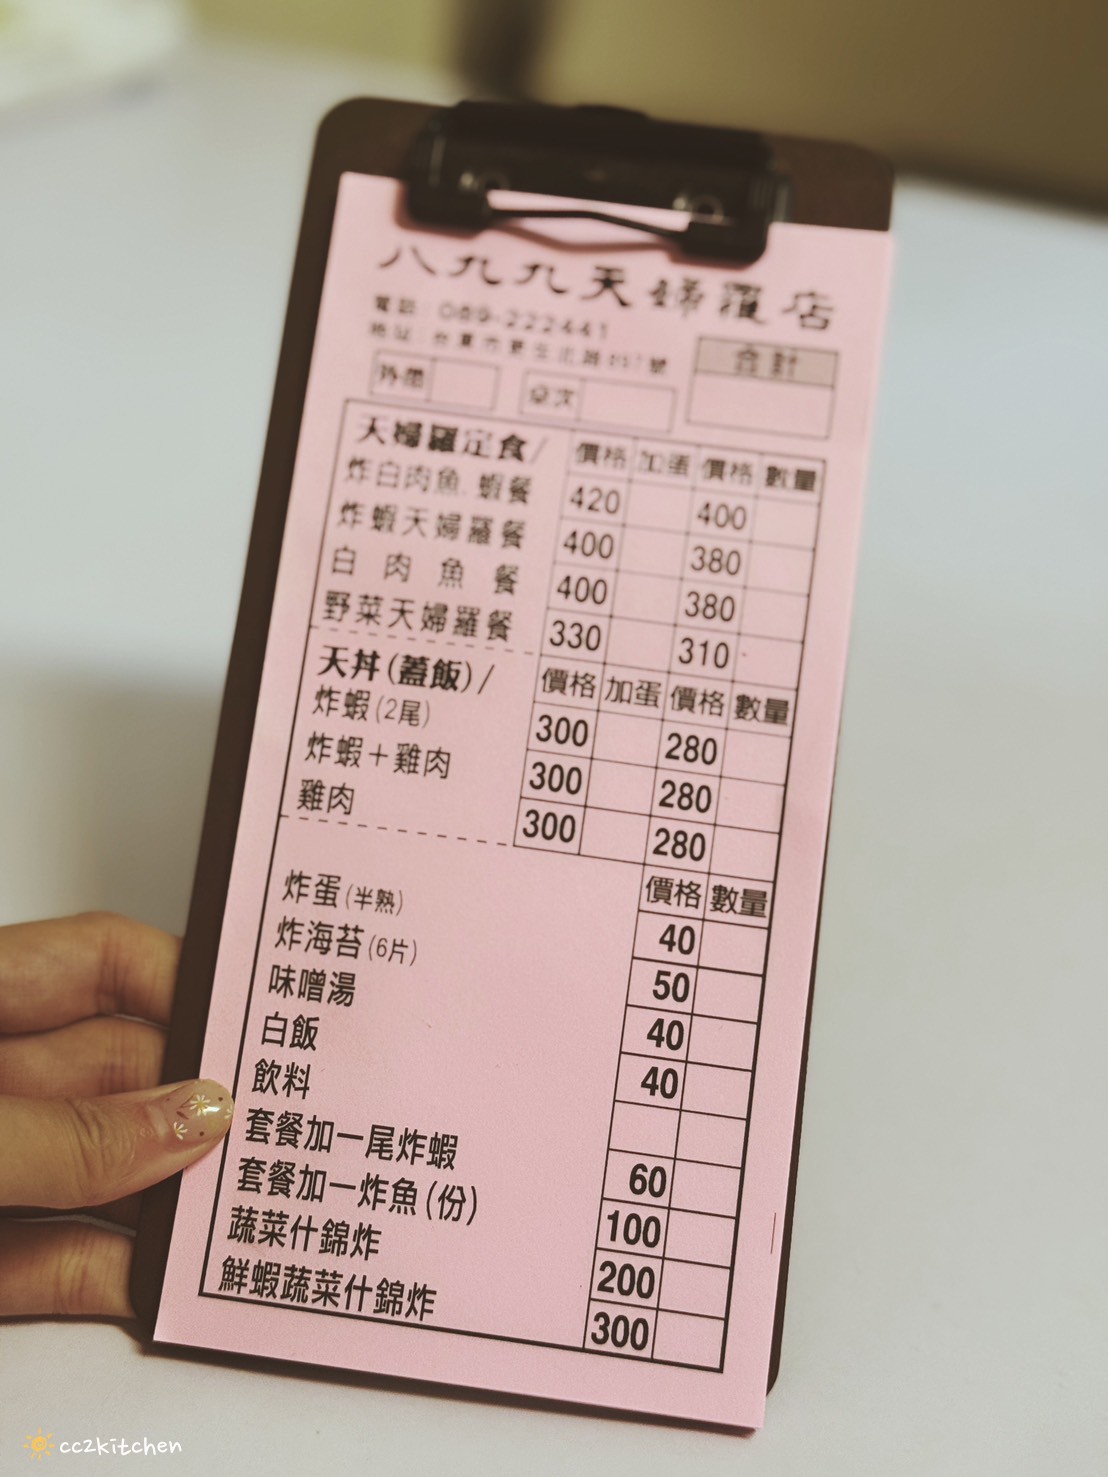 八九九天婦羅店
電話：089-222441
地址：台東市更生北路
合計
外帶
桌次
天婦羅定食/ 價格 加蛋 價格 數量
炸白肉魚.蝦餐 420 400
炸蝦天婦羅餐 400 380
白肉魚餐 400 380
野菜天婦羅餐 330 310
天丼(蓋飯)/ 價格 加蛋 價格 數量
炸蝦(2尾) 300 280
炸蝦+雞肉 300 280
雞肉 300 280
價格 數量
炸蛋(半熟) 40
炸海苔(6片) 50
味噌湯 40
白飯 40
飲料
套餐加一尾炸蝦 60
套餐加一炸魚(份) 100
蔬菜什錦炸 200
鮮蝦蔬菜什錦炸 300
cc2kitchen